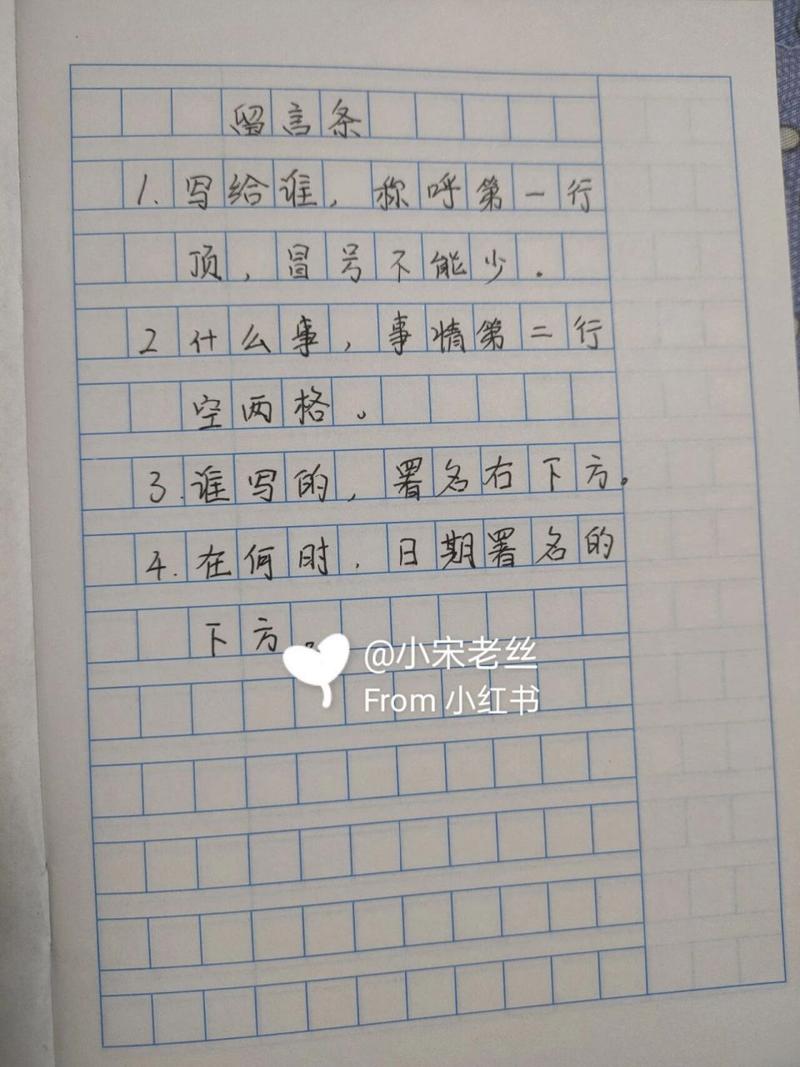 留言条
1.写给谁，称呼第一行
顶，冒号不能少.
2什么事，事情第二行
空两格。
3.谁写的，署名右下方。
4.在何时，日期署名的
下方。
@小宋老丝
From 小红书